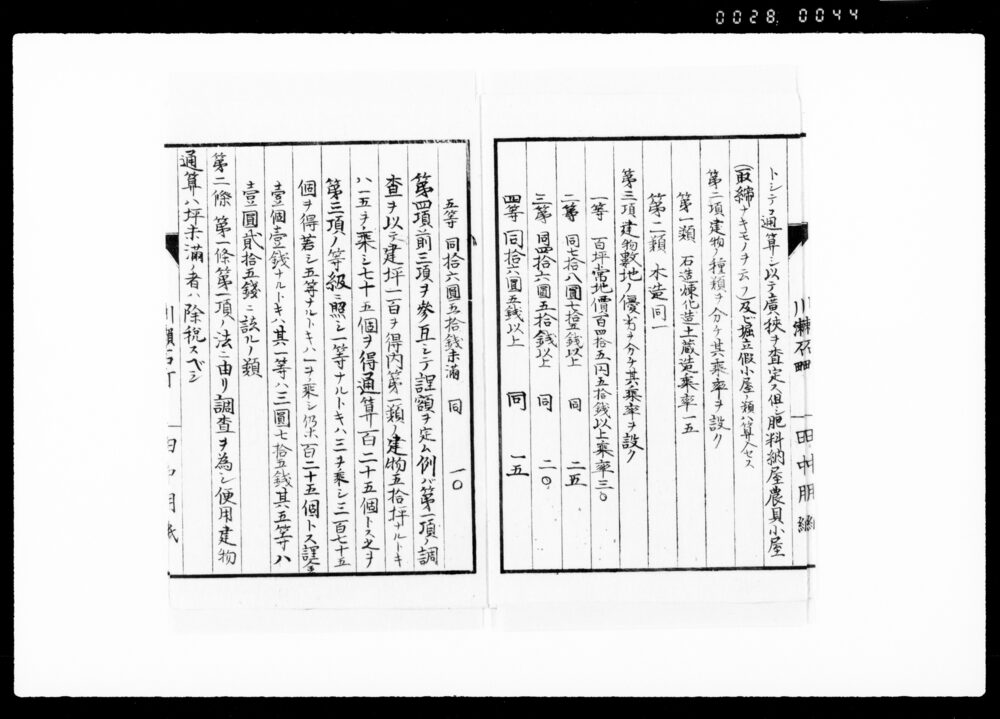 0028 0044
トシテ通算シ以テ廣狹ヲ査定ス但シ肥料納屋農具小屋
(取締ナキモノヲ云フ)及ビ堀立假小屋ノ類ハ算入セス
第二項建物ノ種類ヲ分ケ其乘率ヲ設ク
第一類 石造煉化造土蔵造乘率一五
第二類 木造同一
第三項建物敷地ノ優劣ヲ分ケ其乘率ヲ設ク
一等 百坪當地價百四拾五円五拾銭以上乘率三〇
二等 同七拾八圓七拾五銭以上 同 二五
三等 同四拾六圓五拾銭以上 同 二〇
四等 同拾六圓五銭以上 同 一五
五等 同拾六圓五拾銭未満 同 一〇
第四項前三項ヲ參互シテ課額ヲ定ム例バ第一項ノ調
査ヲ以テ建坪一百ヲ得内第一類ノ建物五拾坪ナルトキ
ハ一五ヲ乘シ七十五個ヲ得通算一百二十五個トス之ヲ
第三項ノ等級ニ照シ一等ナルトキハ三ヲ乘シ三百七十五
個ヲ得若シ五等ナルトキハ一ヲ乘シ仍ホ百二十五個トス課金
壹個壹銭ナルトキハ其一等ハ三圓七拾五銭其五等ハ
壹圓貳拾五銭ニ該ルノ類
第二條 第一條第一項ノ法ニ由リ調査ヲ為シ使用建物
通算八坪未滿ノ者ハ除税スベシ